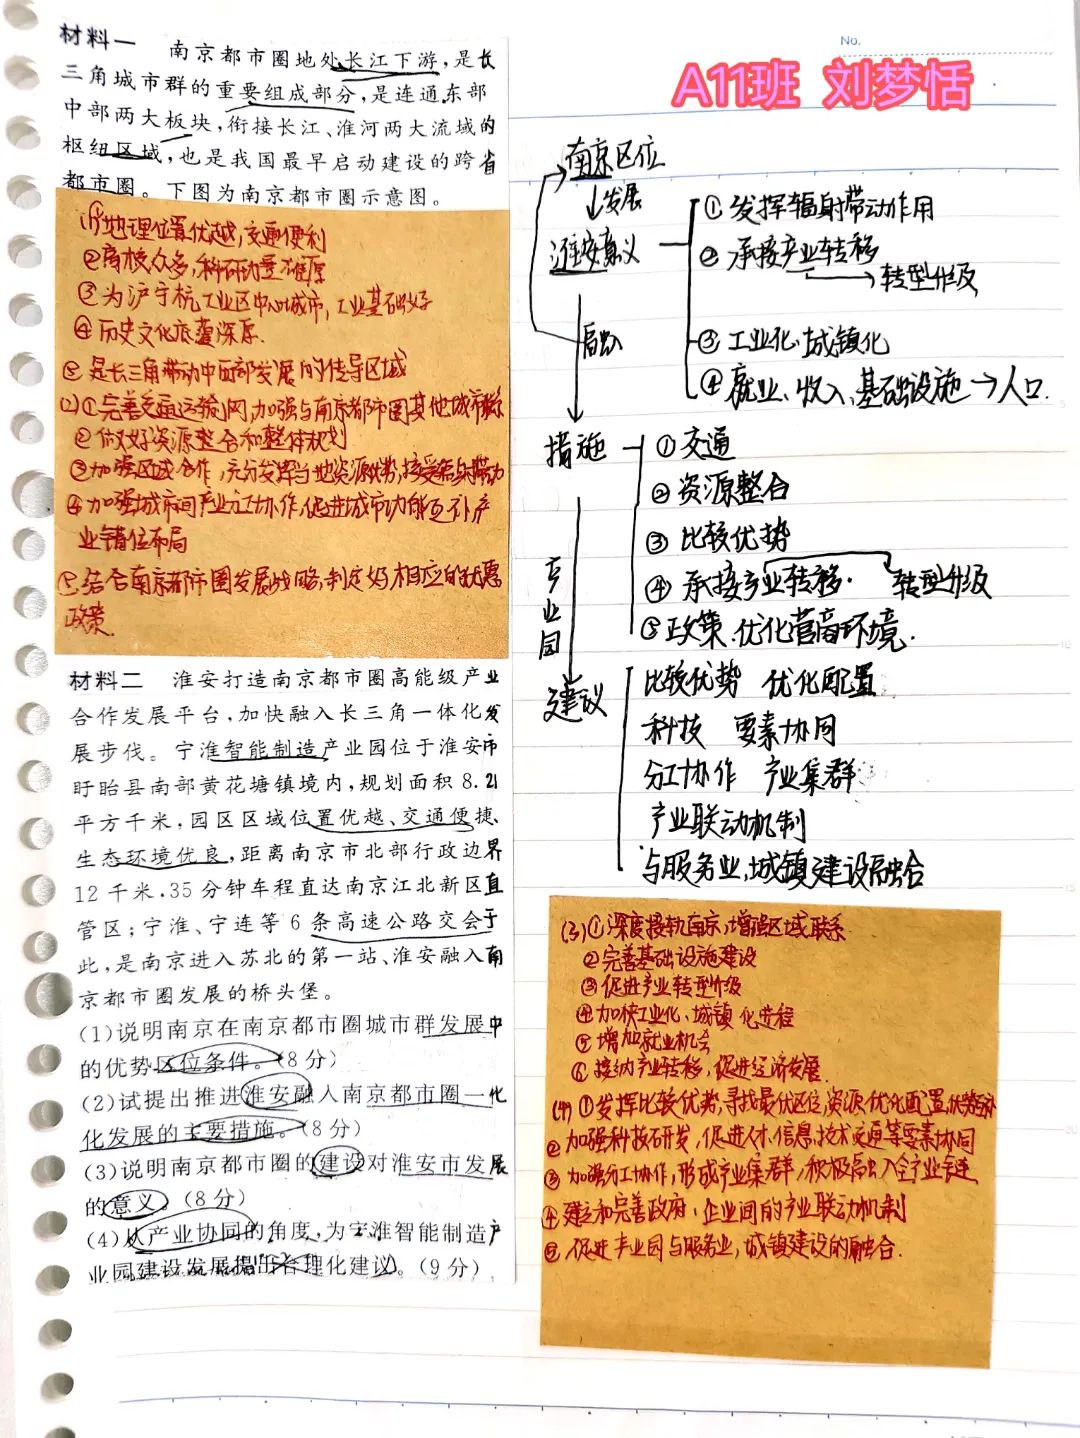 No.
A11班 刘梦恬
材料一 南京都市圈地处长江下游,是长
三角城市群的重要组成部分,是连通东部
中部两大板块,衔接长江、淮河两大流域的
枢纽区域,也是我国最早启动建设的跨省
都市圈。下图为南京都市圈示意图。
(1)①地理位置优越,交通便利
②高校众多,科研力量雄厚
③为沪宁杭工业区中心城市,工业基础好
④历史文化底蕴深厚.
⑤是长三角带动中西部发展的传导区域
(2)①完善交通运输网,加强与南京都市圈其他城市联系
②做好资源整合和整体规划
③加强区域合作,充分发挥当地资源优势,接受辐射带动
④加强城市间产业分工协作,促进城市功能互补产
业错位布局
⑤结合南京都市圈发展战略,制定好相应的优惠
政策.
材料二 淮安打造南京都市圈高能级产业
合作发展平台,加快融入长三角一体化发
展步伐。宁淮智能制造产业园位于淮安市
盱眙县南部黄花塘镇境内,规划面积8.21
平方千米,园区区域位置优越、交通便捷、
生态环境优良,距离南京市北部行政边界
12千米.35分钟车程直达南京江北新区直
管区;宁淮、宁连等6条高速公路交会于
此,是南京进入苏北的第一站、淮安融入南
京都市圈发展的桥头堡。
(1)说明南京在南京都市圈城市群发展中
的优势区位条件。(8分)
(2)试提出推进淮安融入南京都市圈一化
化发展的主要措施。(8分)
(3)说明南京都市圈的建设对淮安市发展
的意义。(8分)
(4)从产业协同的角度,为宁淮智能制造产
业园建设发展提出合理化建议。(9分)
南京区位
发展
淮安意义
①发挥辐射带动作用
②承接产业转移
转型升级
③工业化、城镇化
④就业、收入、基础设施→人口.
融入
措施
①交通
②资源整合
③比较优势
④承接产业转移. 转型升级
⑤政策、优化营商环境.
产业园
建议
比较优势 优化配置
科技 要素协同
分工协作 产业集群
产业联动机制
与服务业,城镇建设融合
(3)①深度接轨南京,增强区域联系
②完善基础设施建设
③促进产业转型升级
④加快工业化、城镇化进程
⑤增加就业机会
⑥接纳产业转移,促进经济发展.
(4)①发挥比较优势,寻找最优区位,资源优化配置,优势互补
②加强科技研发,促进人才、信息、技术交通等要素协同
③加强分工协作,形成产业集群,积极融入全产业链
④建立和完善政府、企业间的产业联动机制
⑤促进产业园与服务业,城镇建设的融合.